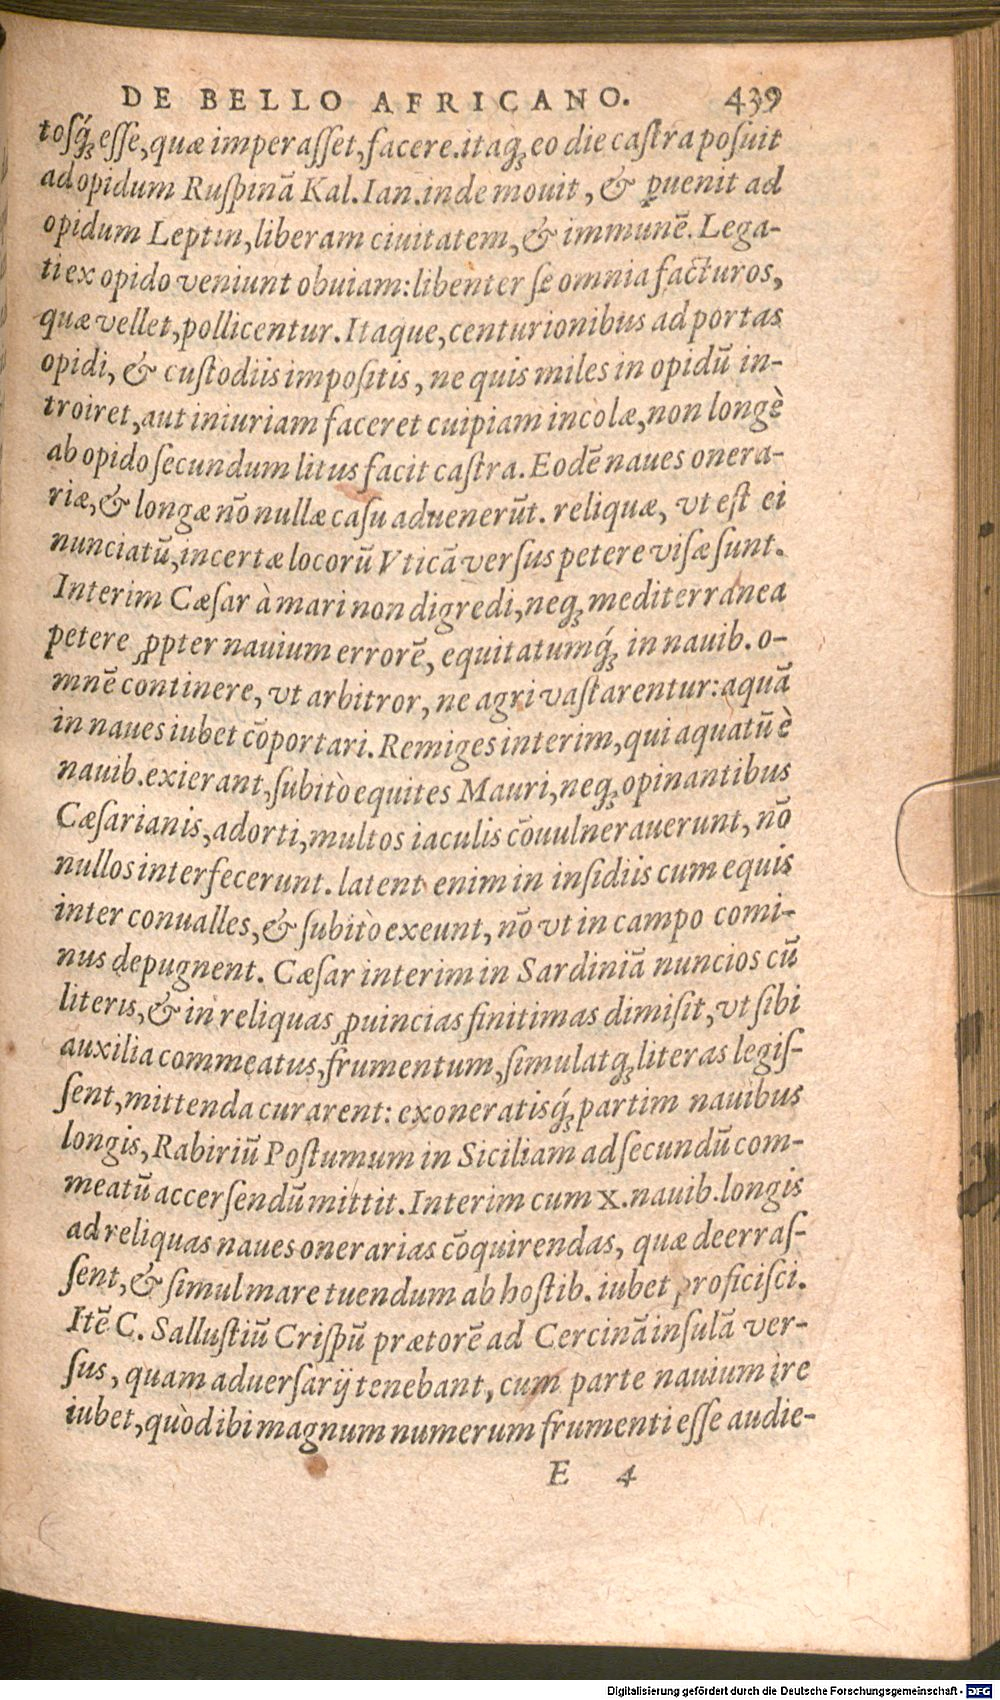 DE BELLO AFRICANO. 439
tosq́ꝫ esse, quæ imperasset, facere. itaqꝫ eo die castra posuit
ad opidum Ruspinā Kal. Ian. inde mouit, & ꝑuenit ad
opidum Leptin, liberam ciuitatem, & immunē. Lega-
ti ex opido veniunt obuiam: libenter se omnia facturos,
quæ vellet, pollicentur. Itaque, centurionibus ad portas
opidi, & custodiis impositis, ne quis miles in opidū in-
troiret, aut iniuriam faceret cuipiam incolæ, non longè
ab opido secundum litus facit castra. Eodē naues onera-
riæ, & longæ nōnullæ casu aduenerūt. reliquæ, vt est ei
nunciatū, incertæ locorū Vticā versus petere visæ sunt.
Interim Cæsar à mari non digredi, neqꝫ mediterranea
petere ꝓpter nauium errorē, equitatumq́ꝫ in nauib. o-
mnē continere, vt arbitror, ne agri vastarentur: aquā
in naues iubet cōportari. Remiges interim, qui aquatū è
nauib. exierant, subitò equites Mauri, neqꝫ opinantibus
Cæsarianis, adorti, multos iaculis cōuulnerauerunt, nō
nullos interfecerunt. latent enim in insidiis cum equis
inter conualles, & subitò exeunt, nō vt in campo comi-
nus depugnent. Cæsar interim in Sardiniā nuncios cū
literis, & in reliquas ꝓuincias finitimas dimisit, vt sibi
auxilia commeatus, frumentum, simulatqꝫ literas legis-
sent, mittenda curarent: exoneratisq́ꝫ partim nauibus
longis, Rabiriū Postumum in Siciliam ad secundū com-
meatū accersendū mittit. Interim cum X. nauib. longis
ad reliquas naues onerarias cōquirendas, quæ deerras-
sent, & simul mare tuendum ab hostib. iubet proficisci.
Itē C. Sallustiū Crispū prætorē ad Cercinā insulā ver-
sus, quam aduersarij tenebant, cum parte nauium ire
iubet, quòd ibi magnum numerum frumenti esse audie-
E 4
Digitalisierung gefördert durch die Deutsche Forschungsgemeinschaft - DFG